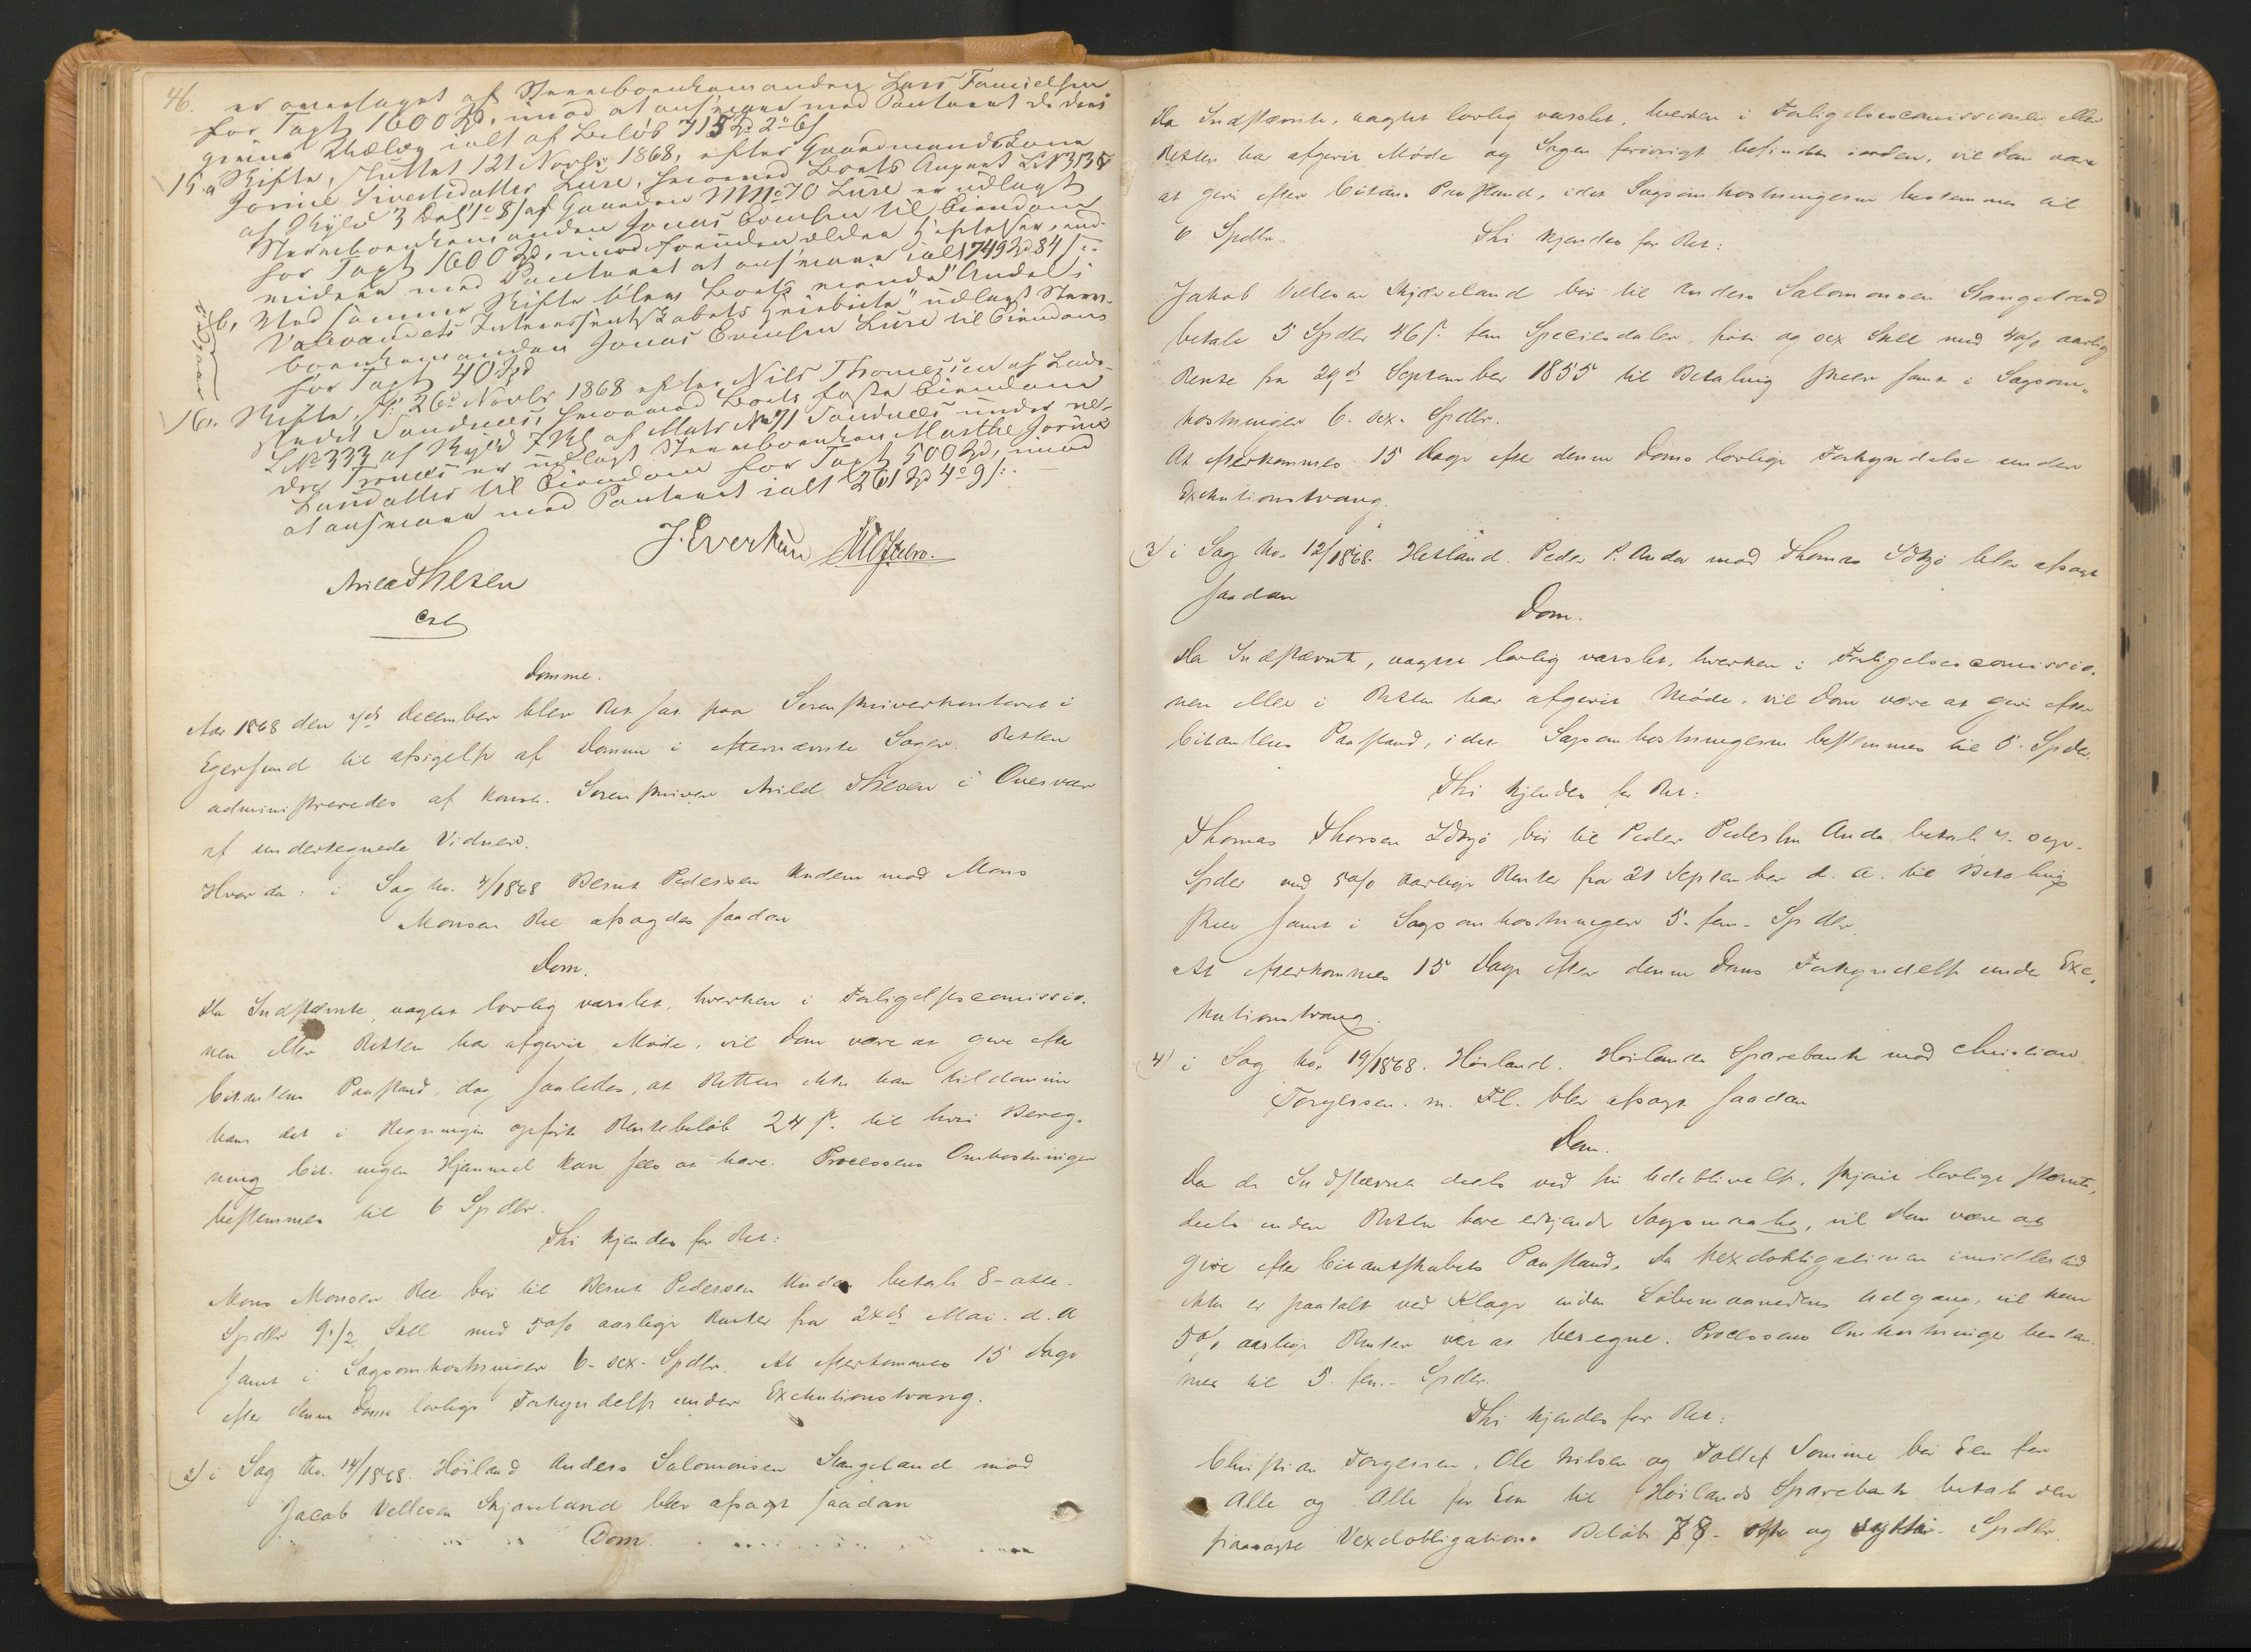 46.
er overtaget af Stervboenkemanden Lars Danielsen
for Taxt 1600 Spd, imod at
givne Udlæg ialt af Beløb 715 Spd 2 o 6 s
15. a Skifte, sluttet 12te Novbr 1868, efter Gaardmandskone
Jorine Sivertsdatter Lure, hvorved Boets Anpart
af Skyld 3 Dal 1 o 8 s af Gaarden MNo 70 Lure er udlagt
Stervboenkemanden Jonas Evensen til Eiendom
for Taxt 1600 Spd, imod foruden Heftelser, end-
videre med Pantearet at ialt 749 Spd 84 s.
b, Ved samme Skifte blev Boets Andel i
udlagt Sterv-
boenkemanden Jonas Evensen Lure til Eiendom
for Taxt 40 Spd
udgaar
16. Skifte, sl: 26de Novbr 1868 efter Nils Thomesen af Lade-
stedet Sandnes, hvorved Boets faste Eiendom
LNo 333 af Skyld af Matr No 71 Sandnes
er udlagt Stervboenken Marthe Jorine
Larsdatter til Eiendom for Taxt 500 Spd, imod
med Pantearet ialt 261 Spd 4 o 9 s.
J. Evertsen
Arild Thesen
cst
Domme.
Aar 1868 den 7de December blev Ret sat paa Sorenskriverkontoret i
Egersund til afsigelse af Domme i efternævnte Sager. Retten
administreredes af konst. Sorenskriver Arild Thesen i Overvær
af undertegnede Vidner.
Hvorda: i Sag No. 4/1868 Bernt Pedersen mod Mons
Monsen Ree afsagdes saadan
Dom.
Da Indstævnte, uagtet lovlig varslet, hverken i Forligelsescomissio-
nen eller Retten har afgivet Møde, vil Dom være at give efter
Citantens Paastand, dog saaledes, at Retten ikke kan tildømme
ham det i Regningen opførte Rentebeløb 24 s. til hvis Bereg-
ning Cit. ingen Hjemmel kan sees at have. Processens Omkostninger
bestemmes til 6 Spdlr.
Thi kjendes for Ret:
Mons Monsen Ree bør til Bernt Pedersen betale 8- otte-
Spdlr 9 1/2 Skll med 5 o/o aarlige Renter fra 24de Mai d. A
samt i Sagsomkostninger 6- sex- Spdlr. At efterkommes 15 Dage
efter denne Doms lovlige Forkyndelse under Exekutionstvang.
2) i Sag No. 14/1868. Høiland Anders Salomonsen Stangeland mod
Jacob Vellesen Skjæveland blev afsagt saadan
Dom.
Da Indstævnte, uagtet lovlig varslet, hverken i Forligelsescomissionen eller
Retten har afgivet Møde og Sagen forøvrigt befindes iorden, vil Dom være
at give efter Citans Paastand, idet Sagsomkostningerne bestemmes til
6 Spdlr.
Thi kjendes for Ret:
Jakob Vellesen Skjæveland bør til Anders Salomonsen Stangeland
betale 5 Spdlr 46 s. fem Speciesdaler, firti og sex Skll med 4 o/o aarlig
Rente fra 29de September 1855 til Betaling skeer samt i Sagsom-
kostninger 6- sex- Spdlr.
At efterkommes 15 Dage efter denne Doms lovlige Forkyndelse under
Exekutionstvang.
3) i Sag No. 12/1868. Hetland. Peder P. Anda mod Thomas Idsø blev afsagt
saadan
Dom.
Da Indstævnte, uagtet lovlig varslet, hverken i Forligelsescomissio-
nen eller i Retten har afgivet Møde, vil Dom være at give efter
Citantens Paastand, idet Sagsomkostningerne bestemmes til 5 Spdlr.
Thi kjendes for Ret:
Thomas Thorsen Idsø bør til Peder Pedersen Anda betale 7- syv-
Spdlr med 5 o/o aarlige Renter fra 21 September d. A. til Betaling
skeer samt i Sagsomkostninger 5- fem- Spdlr.
At efterkommes 15 Dage efter denne Doms Forkyndelse under Exe-
kutionstvang.
4) i Sag No. 19/1868. Høiland. Høilands Sparebank mod Christian
Torgersen m. Fl. blev afsagt saadan
Dom.
Da de Indstævnte deels ved sin Udeblivelse, skjønt lovlige stævnte,
deels inden Retten have erkjendt Sagsmaalet, vil Dom være at
give efter Citantskabets Paastand, da Vexelobligationen imidlertid
ikke er paatalt ved Klage inden Løbemaanedens Udgang, vil kun
5 o/o aarlige Renter være at beregne. Processens Omkostninger bestem-
mes til 5- fem- Spdlr.
Thi kjendes for Ret:
Christian Torgersen, Ole Nilsen og Tollef Somme bør Een for
Alle og Alle for Een til Høilands Sparebank betale den
paasagte Vexelobligations Beløb 78- otte og sytti- Spdlr.